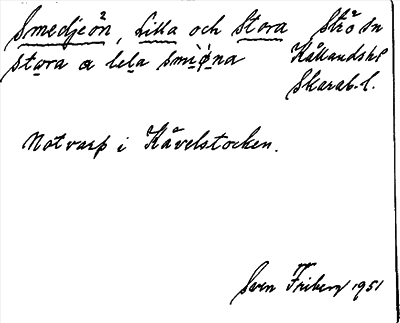 Smedjeön, Lilla och Stora Strö sn
stora a lela smiöna Kållandshd
Skarab. l.
Notvarp i Kåvelstocken.
Sven Friberg 1951